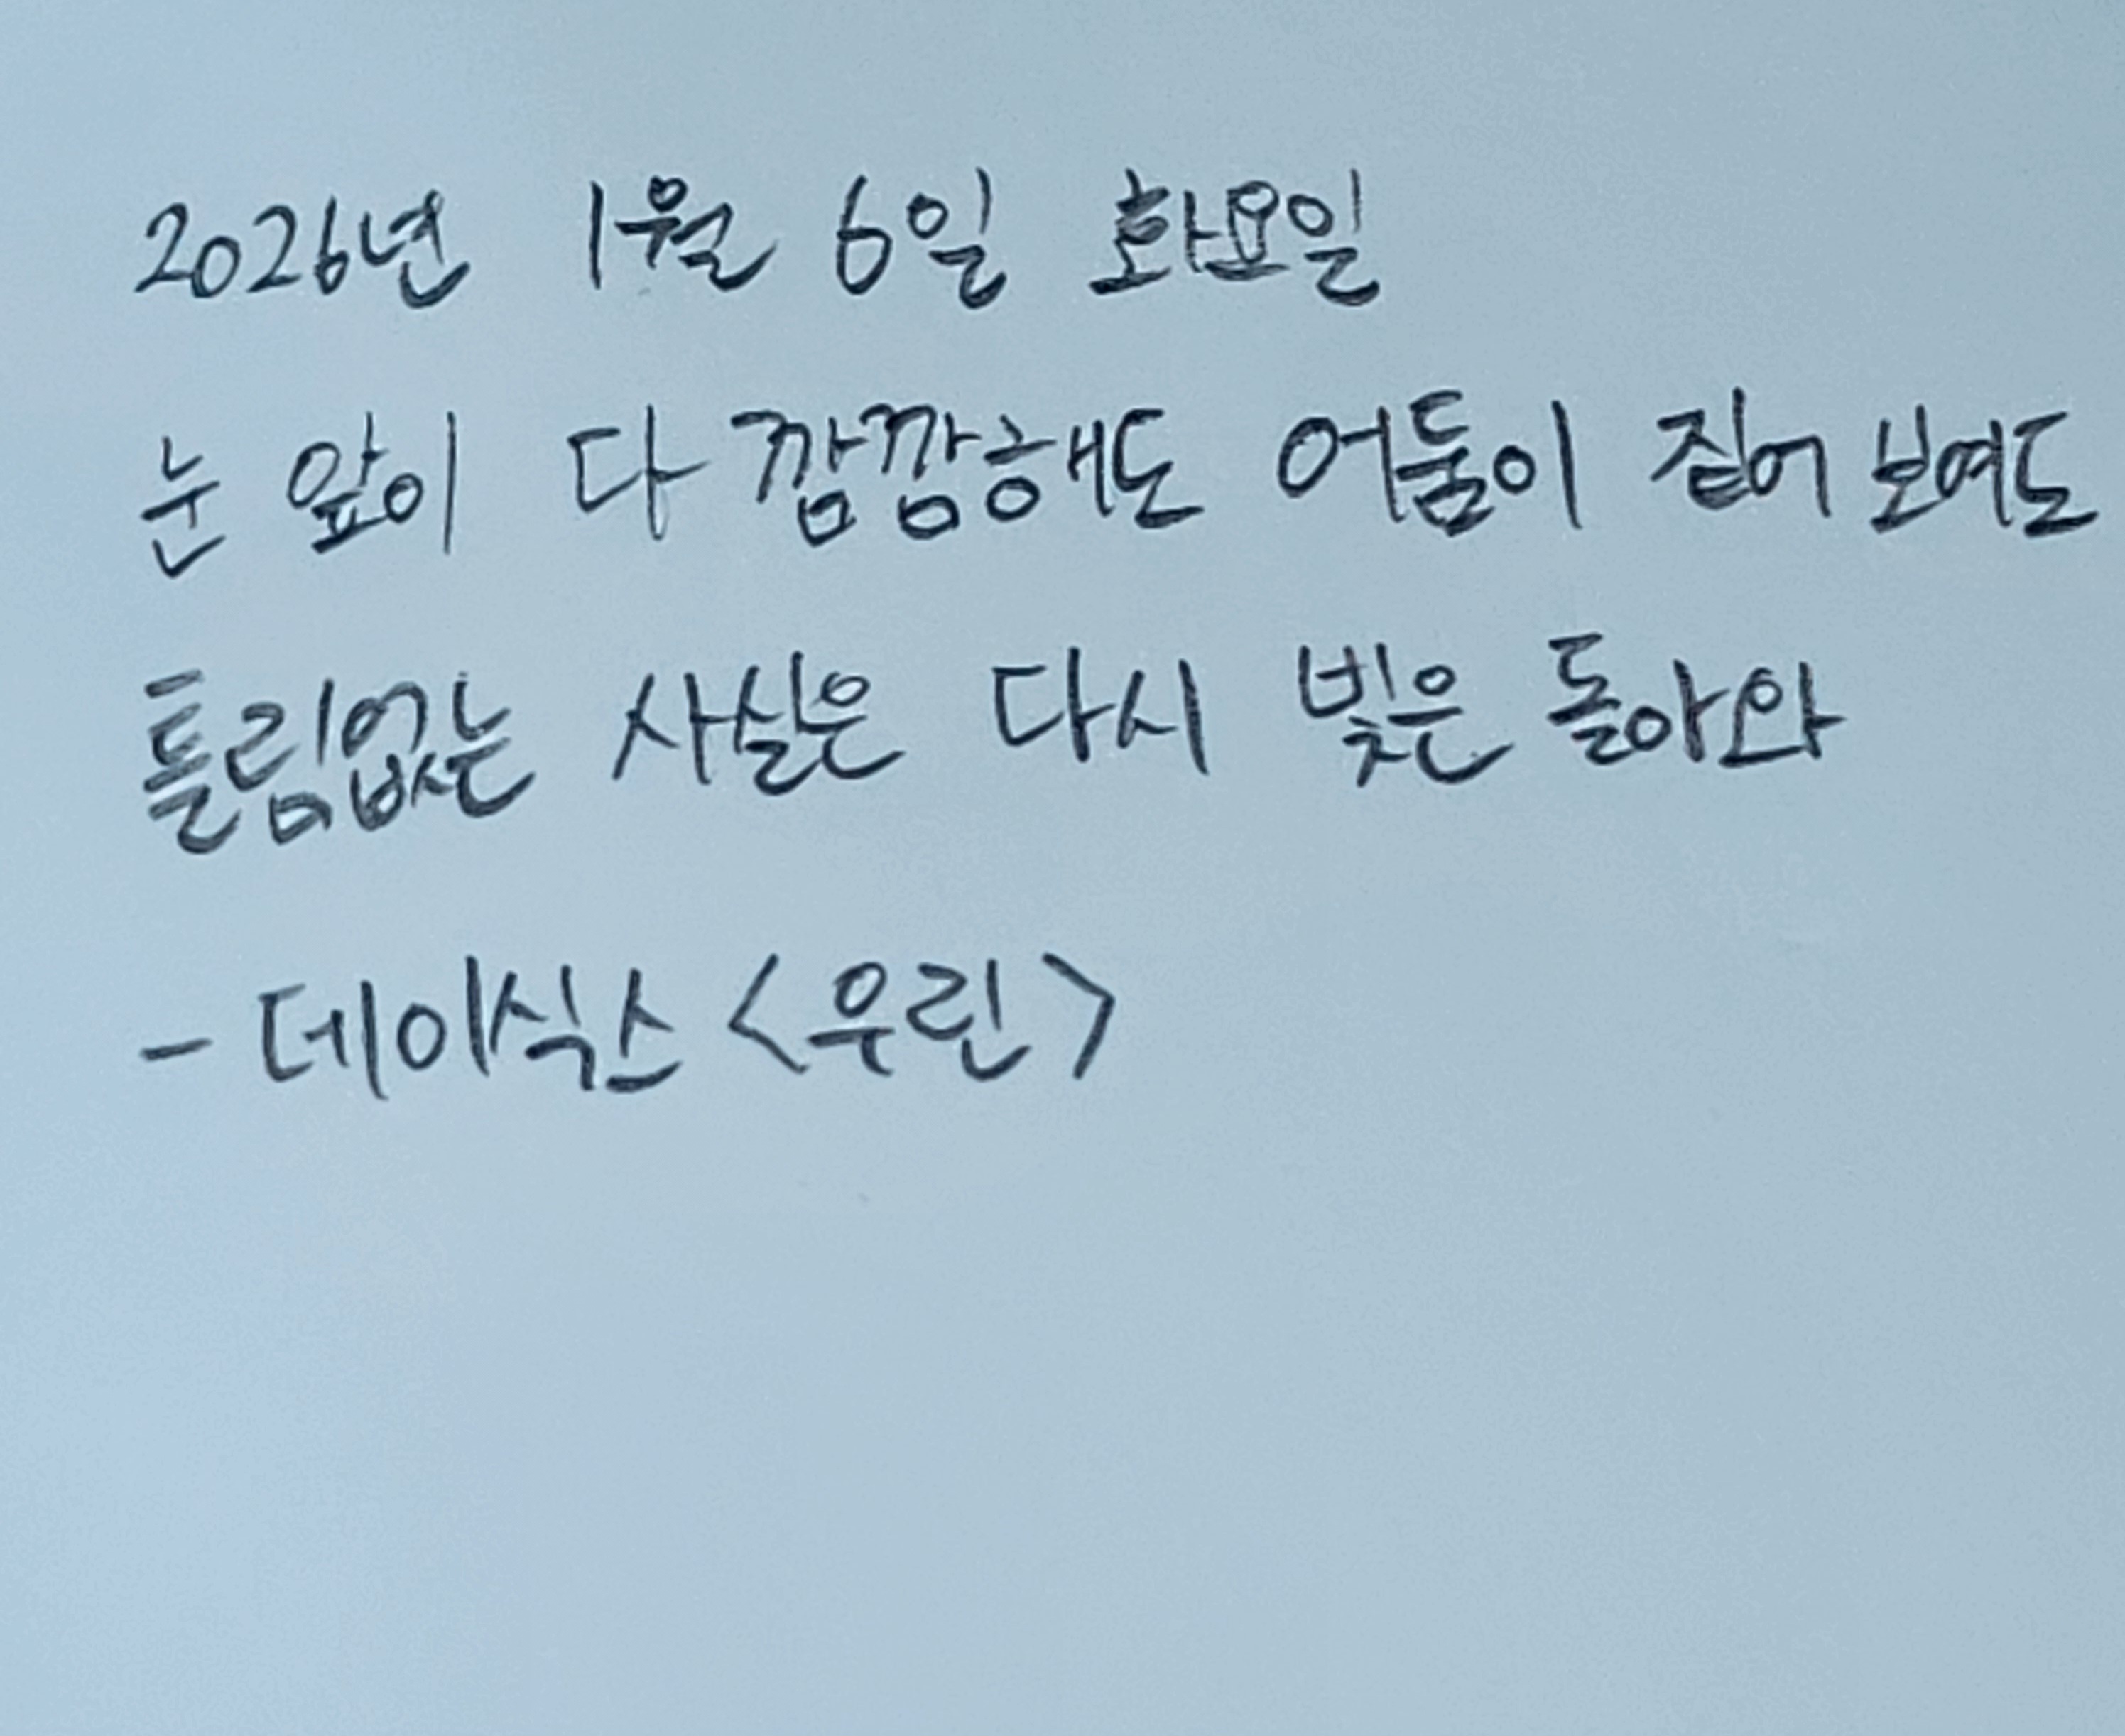 2026년 1월 6일 화요일
눈 앞이 다 깜깜해도 어둠이 짙어 보여도
틀림없는 사실은 다시 빛은 돌아와
- 데이식스 <우린>